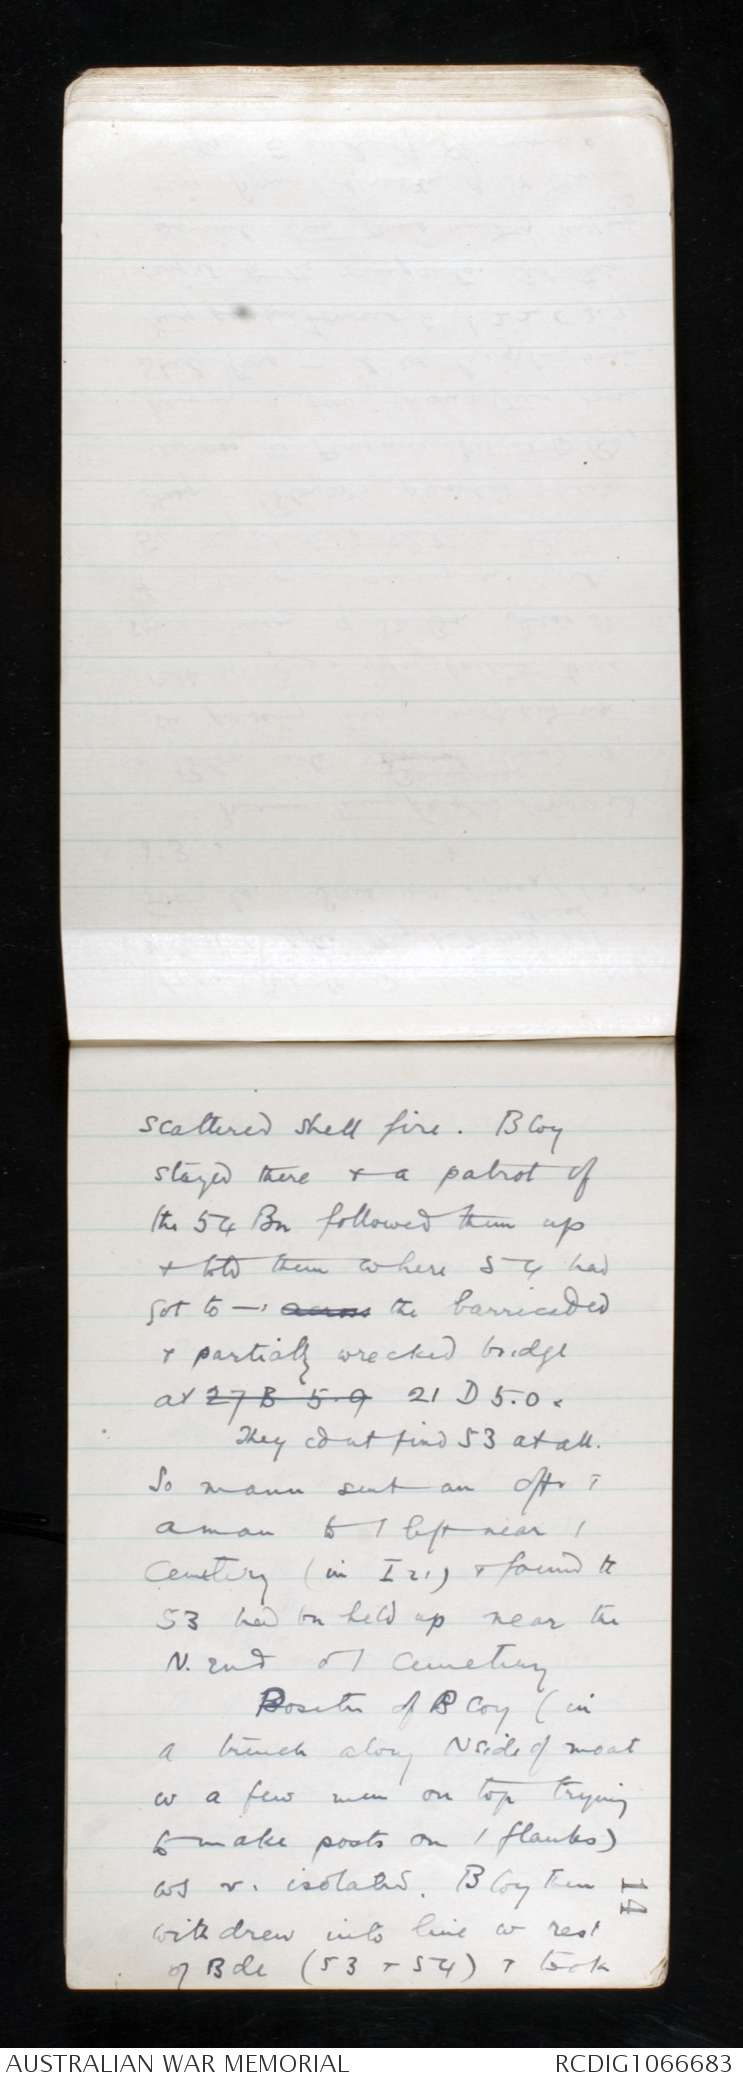 scattered shell fire. B Coy
stayed there & a patrol of
the 54 Bn followed them up
& told them where 54 had
got to — across the barricaded
& partially wrecked bridge
at 27 B 5.9 21 D 5.0.
They cd nt find 53 at all.
So Mann sent an offr &
a man to / left near /
Cemetery (in I 21) & found tt
53 had bn held up near the
N. end o / Cemetery
Positn of B Coy (in
a trench along N side of moat
w a few men on top trying
to make posts on / flanks)
ws v. isolated. B Coy then
withdrew into line w rest
of Bde (53 & 54) & took
14
AUSTRALIAN WAR MEMORIAL
RCDIG1066683